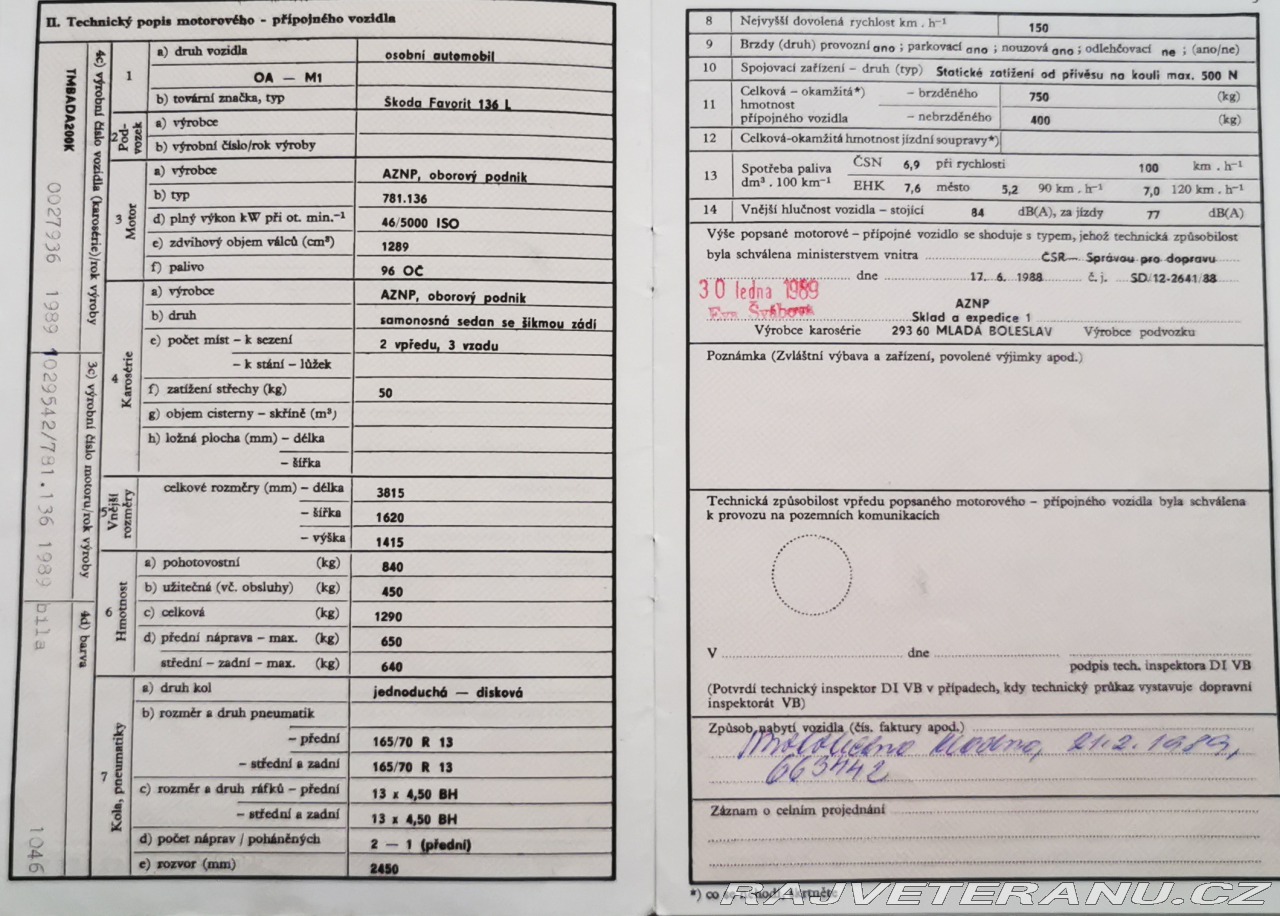 II. Technický popis motorového - přípojného vozidla
4c) výrobní číslo vozidla (karosérie)/rok výroby
TMBADA200K
0027936 1989
3c) výrobní číslo motoru/rok výroby
1029542/781.136 1989
4d) barva
bílá
1046
1 a) druh vozidla osobní automobil
OA — M1
b) tovární značka, typ Škoda Favorit 136 L
2 Pod-
vozek
a) výrobce
b) výrobní číslo/rok výroby
3 Motor
a) výrobce AZNP, oborový podnik
b) typ 781.136
d) plný výkon kW při ot. min.⁻¹ 46/5000 ISO
e) zdvihový objem válců (cm³) 1289
f) palivo 96 OČ
4 Karosérie
a) výrobce AZNP, oborový podnik
b) druh samonosná sedan se šikmou zádí
c) počet míst - k sezení 2 vpředu, 3 vzadu
- k stání - lůžek
f) zatížení střechy (kg) 50
g) objem cisterny - skříně (m³)
h) ložná plocha (mm) - délka
- šířka
5 Vnější
rozměry
celkové rozměry (mm) - délka 3815
- šířka 1620
- výška 1415
6 Hmotnost
a) pohotovostní (kg) 840
b) užitečná (vč. obsluhy) (kg) 450
c) celková (kg) 1290
d) přední náprava - max. (kg) 650
střední - zadní - max. (kg) 640
7 Kola, pneumatiky
a) druh kol jednoduchá — disková
b) rozměr a druh pneumatik
- přední 165/70 R 13
- střední a zadní 165/70 R 13
c) rozměr a druh ráfků - přední 13 x 4,50 BH
- střední a zadní 13 x 4,50 BH
d) počet náprav / poháněných 2 — 1 (přední)
e) rozvor (mm) 2450
8 Nejvyšší dovolená rychlost km . h⁻¹ 150
9 Brzdy (druh) provozní ano ; parkovací ano ; nouzová ano ; odlehčovací ne ; (ano/ne)
10 Spojovací zařízení - druh (typ) Statické zatížení od přívěsu na kouli max. 500 N
11 Celková - okamžitá*) - brzděného 750 (kg)
hmotnost
přípojného vozidla - nebrzděného 400 (kg)
12 Celková-okamžitá hmotnost jízdní soupravy*)
13 Spotřeba paliva ČSN 6,9 při rychlosti 100 km . h⁻¹
dm³ . 100 km⁻¹ EHK 7,6 město 5,2 90 km . h⁻¹ 7,0 120 km . h⁻¹
14 Vnější hlučnost vozidla - stojící 84 dB(A), za jízdy 77 dB(A)
Výše popsané motorové - přípojné vozidlo se shoduje s typem, jehož technická způsobilost
byla schválena ministerstvem vnitra ČSR— Správou pro dopravu
dne 17. 6. 1988 č. j. SD/12-2641/88
30 ledna 1989
Eva Švábová
AZNP
Sklad a expedice 1
Výrobce karosérie 293 60 MLADÁ BOLESLAV Výrobce podvozku
Poznámka (Zvláštní výbava a zařízení, povolené výjimky apod.)
Technická způsobilost vpředu popsaného motorového - přípojného vozidla byla schválena
k provozu na pozemních komunikacích
V dne
podpis tech. inspektora DI VB
(Potvrdí technický inspektor DI VB v případech, kdy technický průkaz vystavuje dopravní
inspektorát VB)
Způsob nabytí vozidla (čís. faktury apod.)
21.2.1989,
663442
Záznam o celním projednání
*) co se nehodí, škrtněte
RAJVETERANU.CZ